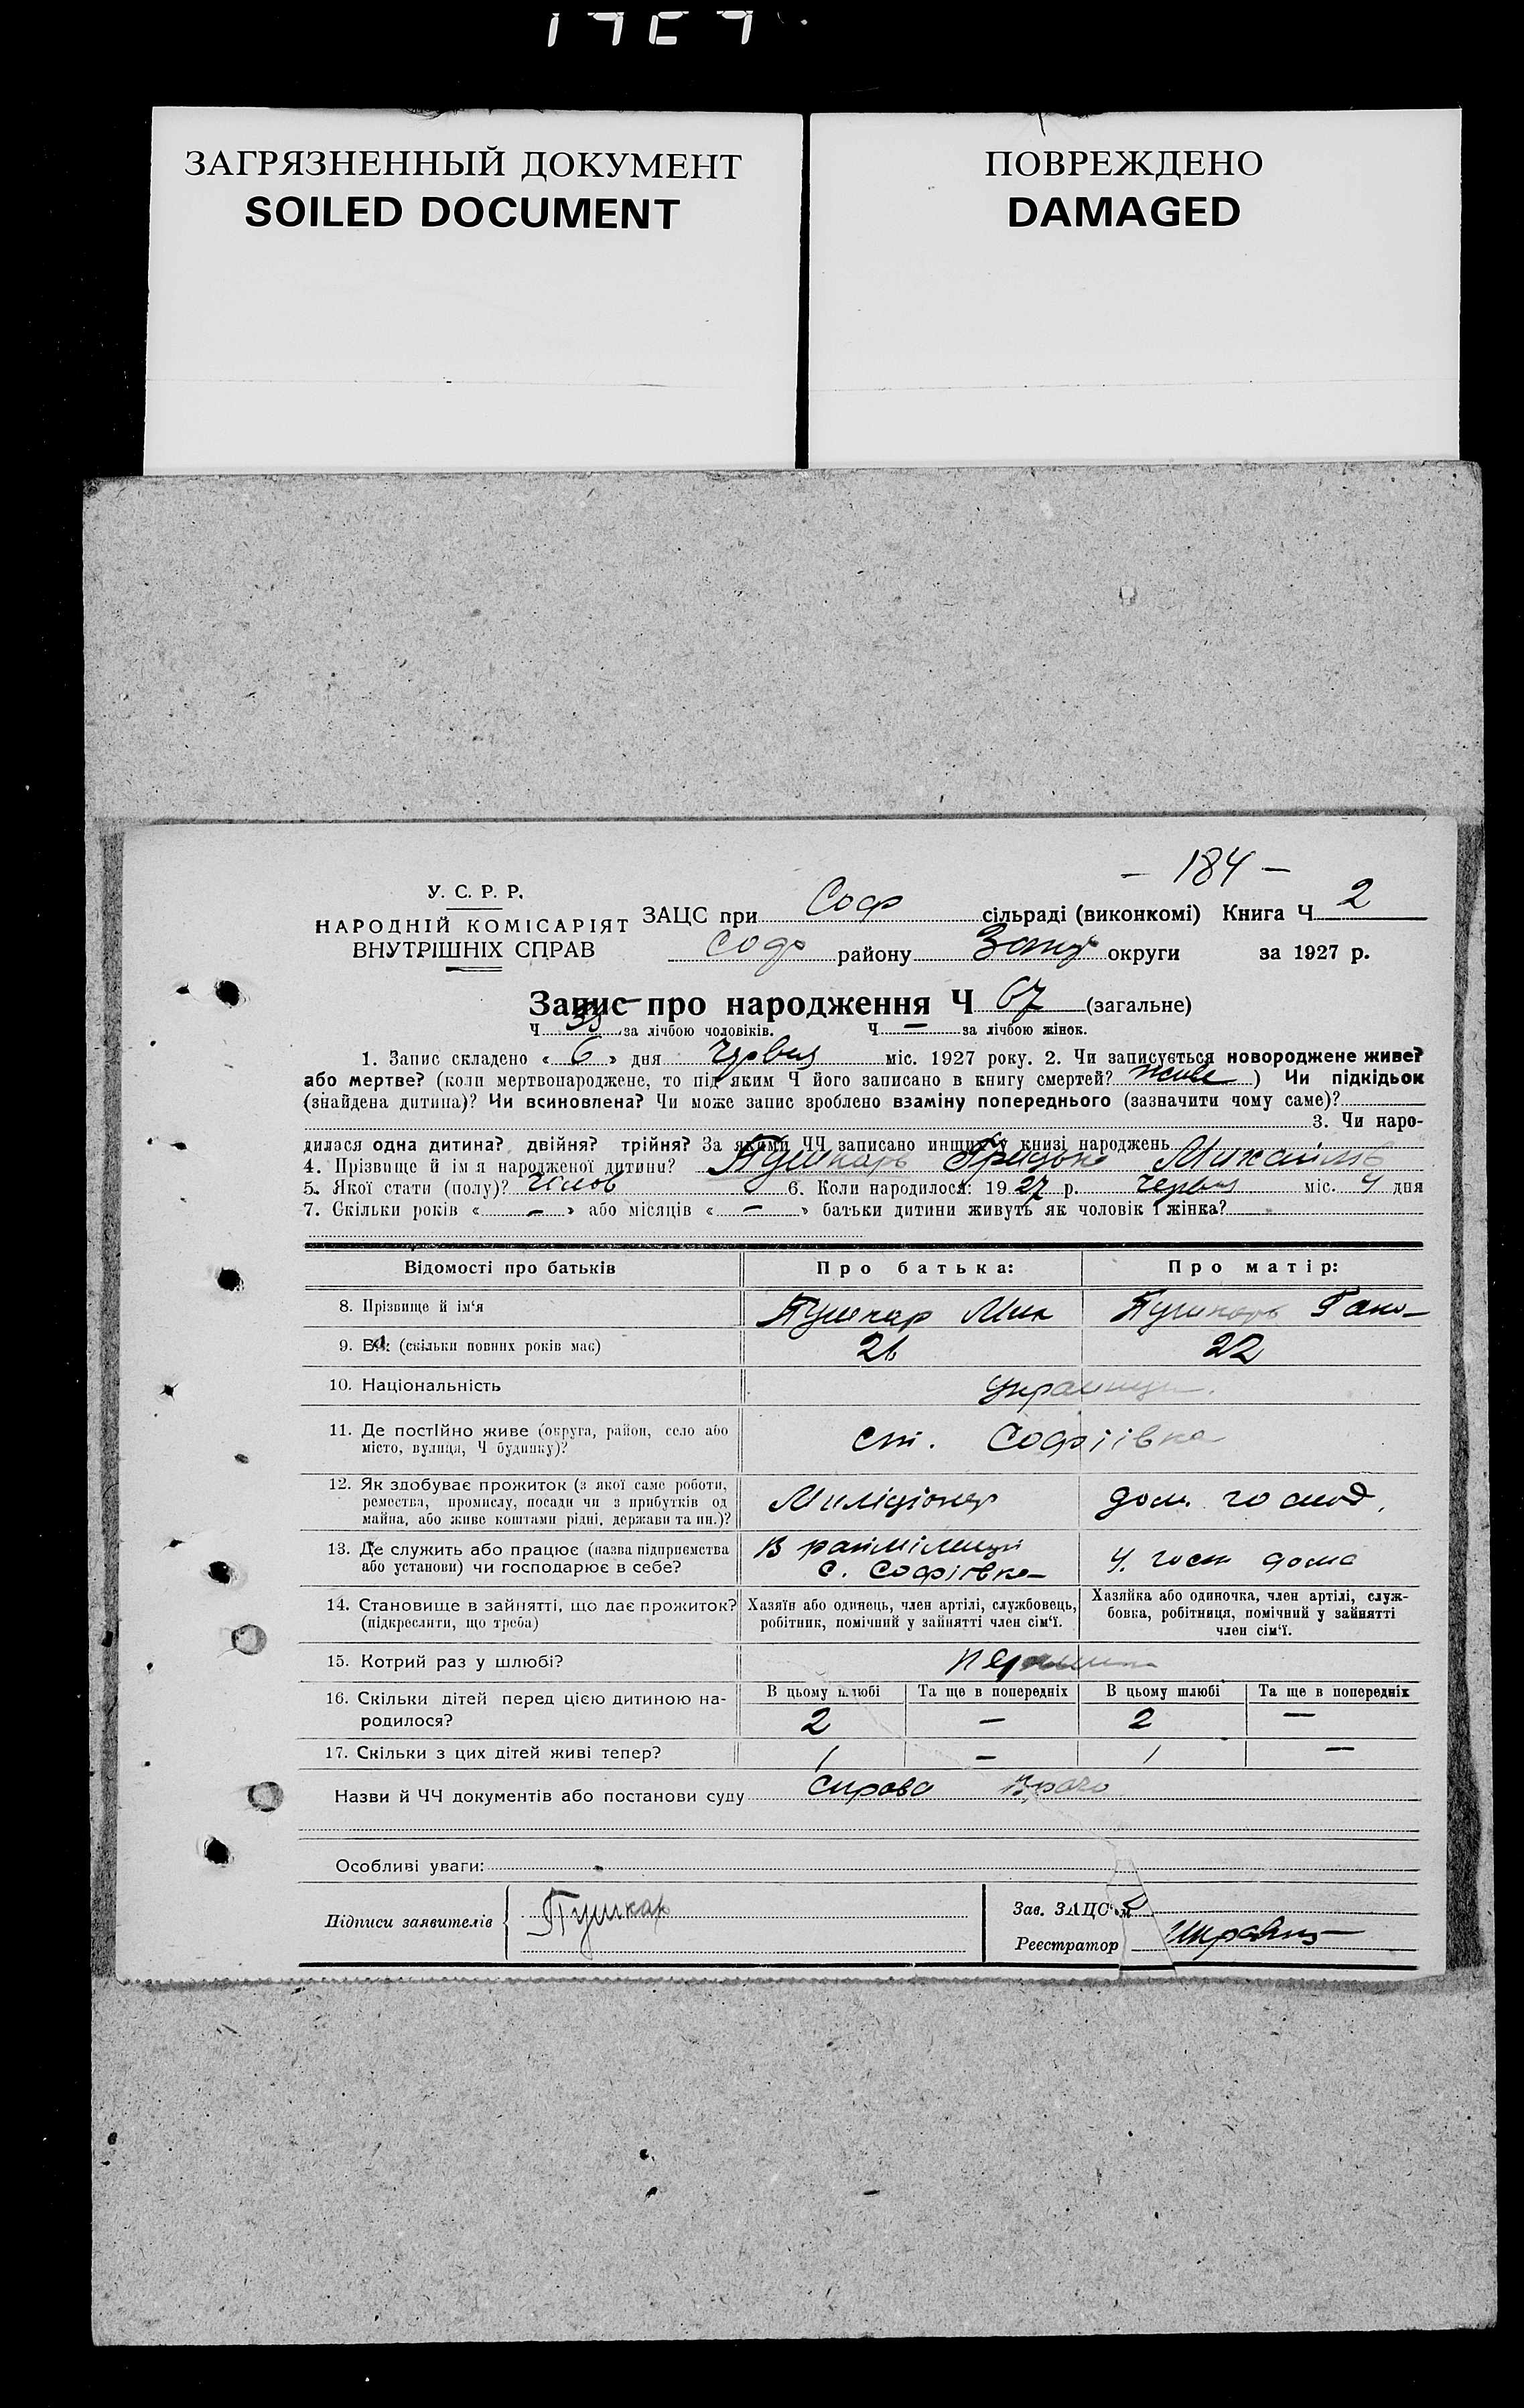 ЗАГРЯЗНЕННЫЙ ДОКУМЕНТ
SOILED DOCUMENT
ПОВРЕЖДЕНО
DAMAGED
— 184 —
У. С. Р. Р.
НАРОДНІЙ КОМІСАРІЯТ
ВНУТРІШНІХ СПРАВ
ЗАЦС при Соф сільраді (виконкомі) Книга Ч 2
Соф району Зап округи за 1927 р.
Запис про народження Ч 67 (загальне)
Ч 33 за лічбою чоловіків. Ч — за лічбою жінок.
1. Запис складено « 6 » дня Червня міс. 1927 року. 2. Чи записується новороджене живе?
або мертве? (коли мертвонароджене, то під яким Ч його записано в книгу смертей? живе ) Чи підкідьок
(знайдена дитина)? Чи всиновлена? Чи може запис зроблено взаміну попереднього (зазначити чому саме)?
3. Чи наро-
дилася одна дитина? двійня? трійня? За якими ЧЧ записано инших у книзі народжень
4. Прізвище й ім я народженої дитини? Пушкарь Грицько Михайлів
5. Якої стати (полу)? чолов 6. Коли народилося: 1927 р. Червня міс. 4 дня
7. Скільки років « — » або місяців « — » батьки дитини живуть як чоловік і жінка?
Відомості про батьків Про батька: Про матір:
8. Прізвище й ім‘я Пушкар Мих Пушкарь Ганн
9. Вік: (скільки повних років має) 26 22
10. Національність Українці
11. Де постійно живе (округа, район, село або
місто, вулиця, Ч будинку)? ст. Софіівка
12. Як здобуває прожиток (з якої саме роботи,
ремества, промислу, посади чи з прибутків од
майна, або живе коштами рідні, держави та ин.)? Міліціонер дом. господ.
13. Де служить або працює (назва підприємства
або установи) чи господарює в себе? В райміліції
с. Софіївка У госп дома
14. Становище в зайнятті, що дає прожиток?
(підкреслити, що треба)
Хазяїн або одинець, член артілі, службовець,
робітник, помічний у зайнятті член сім‘ї.
Хазяйка або одиночка, член артілі, служ-
бовка, робітниця, помічний у зайнятті
член сім‘ї.
15. Котрий раз у шлюбі?
16. Скільки дітей перед цією дитиною на-
родилося?
В цьому шлюбі Та ще в попередніх В цьому шлюбі Та ще в попередніх
2 — 2 —
17. Скільки з цих дітей живі тепер? 1 — 1 —
Назви й ЧЧ документів або постанови суду
Особливі уваги:
Підписи заявителів Пушкар
Зав. ЗАЦС'ом
Реєстратор